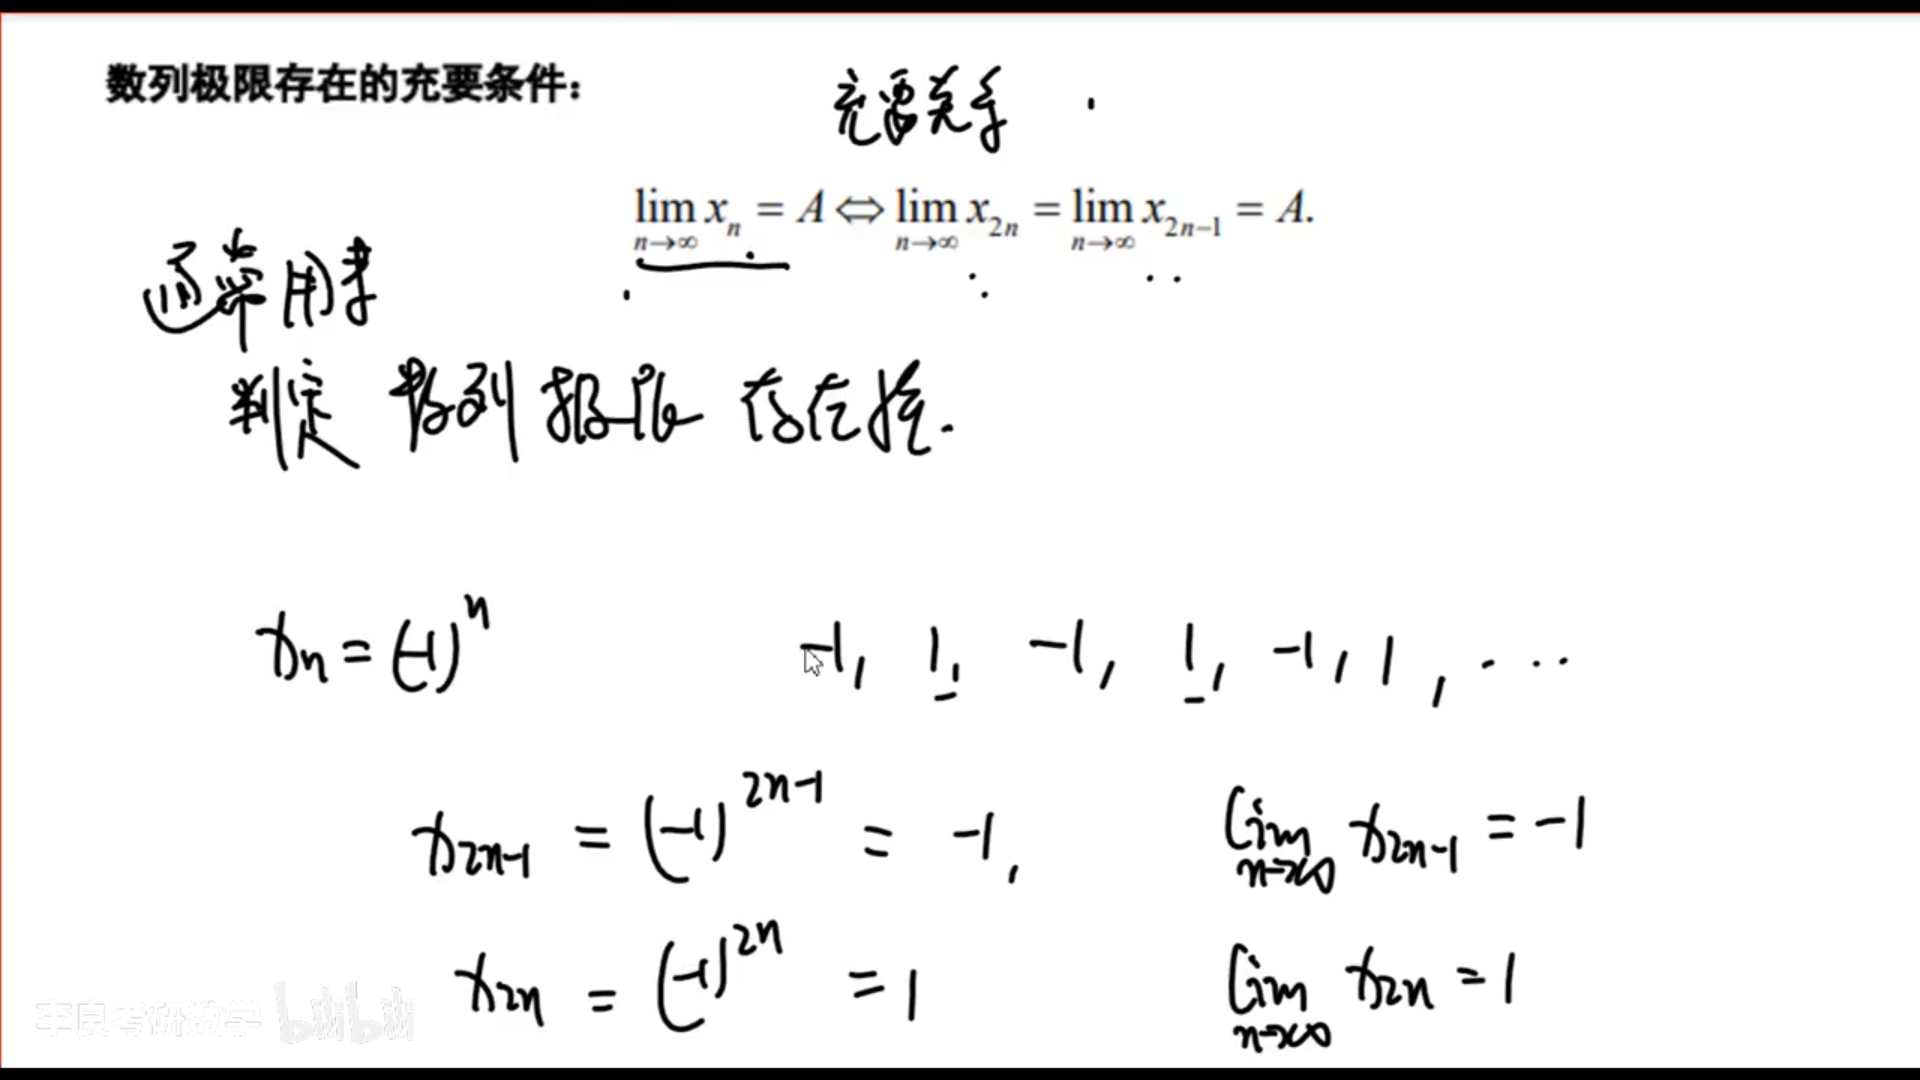 数列极限存在的充要条件：
充要关系
lim x_n = A ⇔ lim x_{2n} = lim x_{2n-1} = A.
n→∞ n→∞ n→∞
通常用来
判定 数列极限 存在性.
x_n = (-1)^n -1, 1, -1, 1, -1, 1, ...
x_{2n-1} = (-1)^{2n-1} = -1, lim_{n→∞} x_{2n-1} = -1
x_{2n} = (-1)^{2n} = 1 lim_{n→∞} x_{2n} = 1
李良考研数学 bilibili